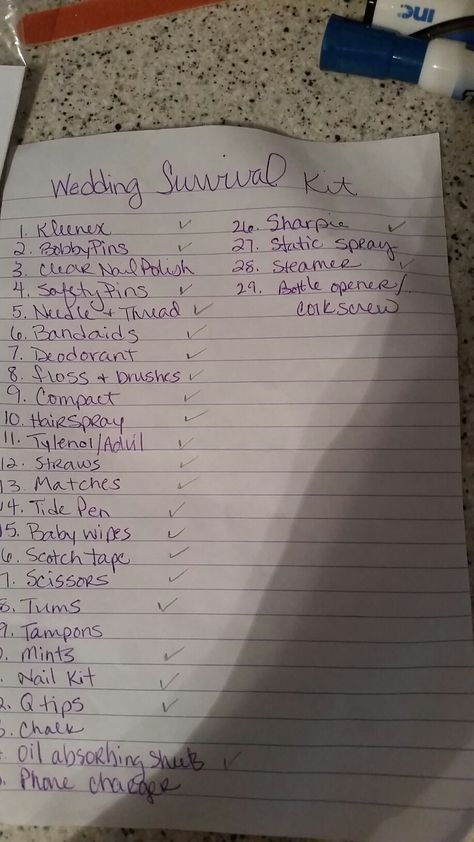 INC.
Wedding Survival Kit
1. Kleenex ✓
2. Bobby Pins ✓
3. Clear Nail Polish
4. Safety Pins ✓
5. Needle + Thread ✓
6. Bandaids ✓
7. Deodorant ✓
8. floss + brushes ✓
9. Compact ✓
10. Hairspray ✓
11. Tylenol/Advil ✓
12. Straws ✓
13. Matches ✓
14. Tide Pen ✓
15. Baby wipes ✓
6. Scotch tape ✓
7. Scissors ✓
8. Tums ✓
9. Tampons
. Mints ✓
. Nail Kit ✓
2. Q tips ✓
3. Chalk
. Oil absorbing sheets ✓
. Phone charger
26. Sharpie ✓
27. Static spray
28. Steamer ✓
29. Bottle opener/
corkscrew